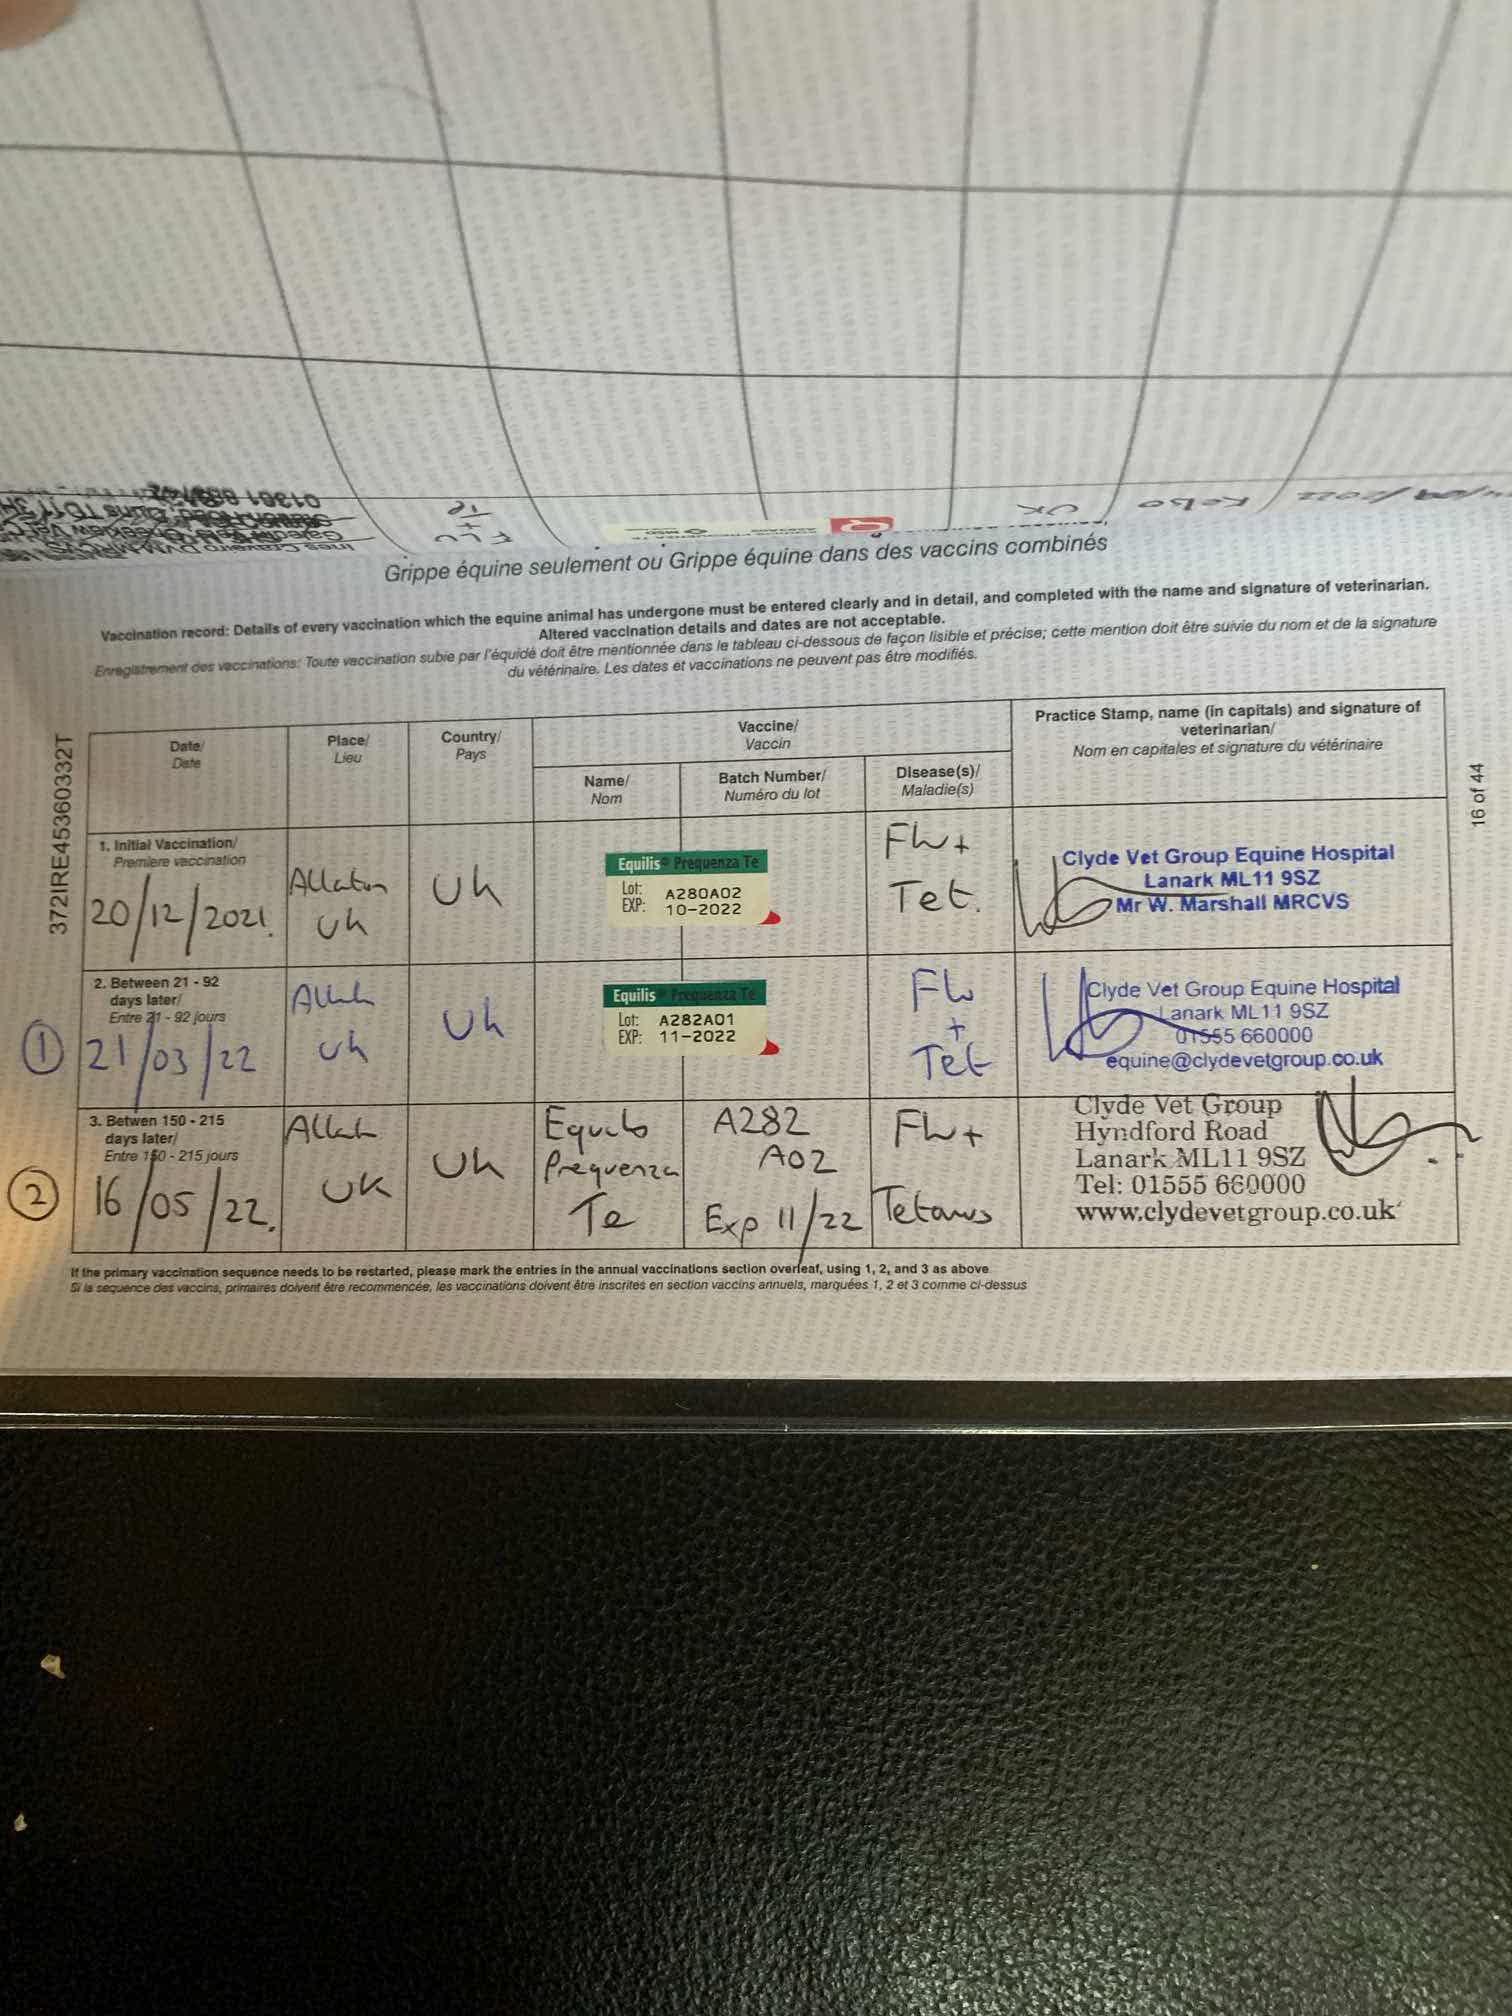 FLU
+
Te
UK
Kelso
Grippe équine seulement ou Grippe équine dans des vaccins combinés
Vaccination record: Details of every vaccination which the equine animal has undergone must be entered clearly and in detail, and completed with the name and signature of veterinarian.
Altered vaccination details and dates are not acceptable.
Enregistrement des vaccinations: Toute vaccination subie par l'équidé doit être mentionnée dans le tableau ci-dessous de façon lisible et précise; cette mention doit être suivie du nom et de la signature
du vétérinaire. Les dates et vaccinations ne peuvent pas être modifiés.
372IRE45360332T
16 of 44
Date/
Date
Place/
Lieu
Country/
Pays
Vaccine/
Vaccin
Name/
Nom
Batch Number/
Numéro du lot
Disease(s)/
Maladie(s)
Practice Stamp, name (in capitals) and signature of
veterinarian/
Nom en capitales et signature du vétérinaire
1. Initial Vaccination/
Premiere vaccination
20/12/2021.
Uk
Uk
Equilis Prequenza Te
Lot: A280A02
EXP: 10-2022
Flu +
Tet.
Clyde Vet Group Equine Hospital
Lanark ML11 9SZ
Mr W. Marshall MRCVS
2. Between 21 - 92
days later/
Entre 21 - 92 jours
1 21/03/22
Uk
Uk
Equilis Prequenza Te
Lot: A282A01
EXP: 11-2022
Flu
+
Tet
Clyde Vet Group Equine Hospital
Lanark ML11 9SZ
01555 660000
equine@clydevetgroup.co.uk
3. Betwen 150 - 215
days later/
Entre 150 - 215 jours
2 16/05/22.
UK
Uk
Equilis
Prequenza
Te
A282
A02
Exp 11/22
Flu +
Tetanus
Clyde Vet Group
Hyndford Road
Lanark ML11 9SZ
Tel: 01555 660000
www.clydevetgroup.co.uk
If the primary vaccination sequence needs to be restarted, please mark the entries in the annual vaccinations section overleaf, using 1, 2, and 3 as above
Si la sequence des vaccins, primaires doivent être recommencée, les vaccinations doivent être inscrites en section vaccins annuels, marquées 1, 2 et 3 comme ci-dessus